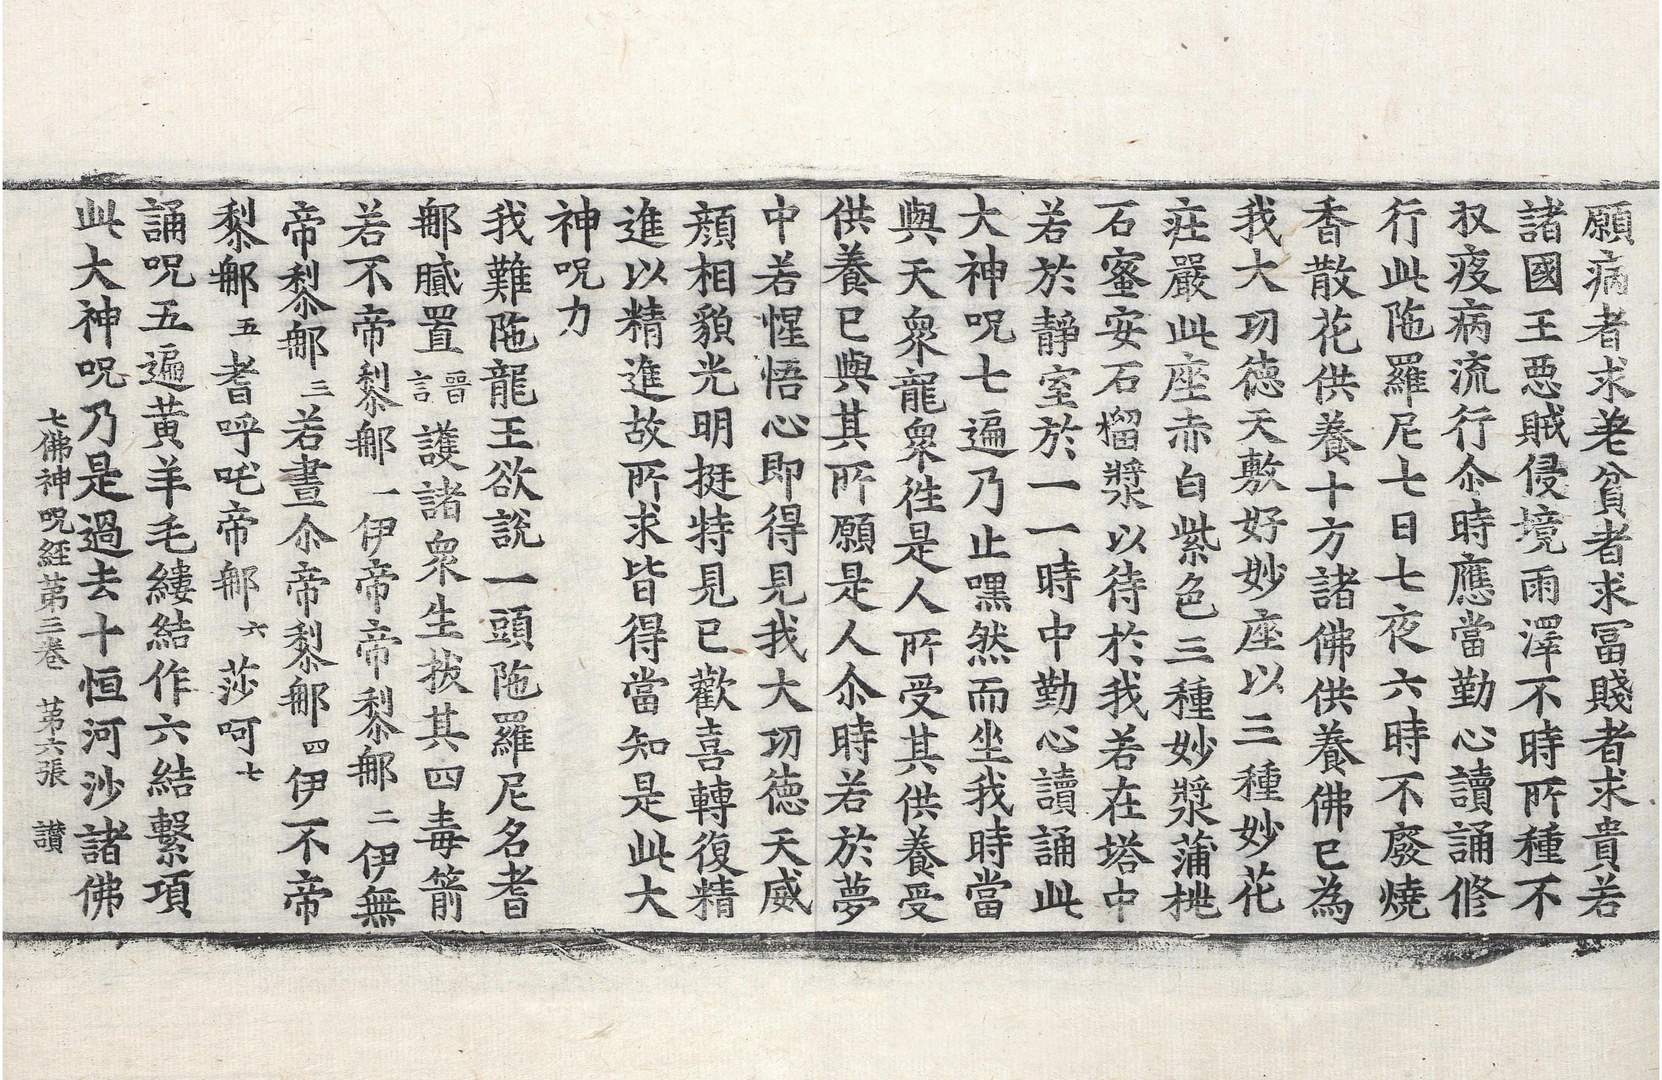 願病者求差貧者求冨賤者求貴若
諸國王惡賊侵境雨澤不時所種不
収疫病流行尒時應當勤心讀誦修
行此陁羅尼七日七夜六時不廢燒
香散花供養十方諸佛供養佛已為
我大功德天敷好妙座以三種妙花
莊嚴此座赤白紫色三種妙漿蒲桃
石蜜安石榴漿以待於我若在塔中
若於靜室於一一時中勤心讀誦此
大神呪七遍乃止嘿然而坐我時當
與天衆龍衆徃是人所受其供養受
供養已與其所願是人尒時若於夢
中若惺悟心即得見我大功德天威
顏相貌光明挺特見已歡喜轉復精
進以精進故所求皆得當知是此大
神呪力
我難陁龍王欲說一頭陁羅尼名耆
郍膩置晉言護諸衆生拔其四毒箭
若不帝黎郍一伊帝帝黎郍二伊無
帝黎郍三若晝尒帝黎郍四伊不帝
黎郍五耆呼吒帝郍六莎呵七
誦呪五遍黃羊毛縷結作六結繫項
此大神呪乃是過去十恒河沙諸佛
七佛神呪經苐三卷 苐六張 讃